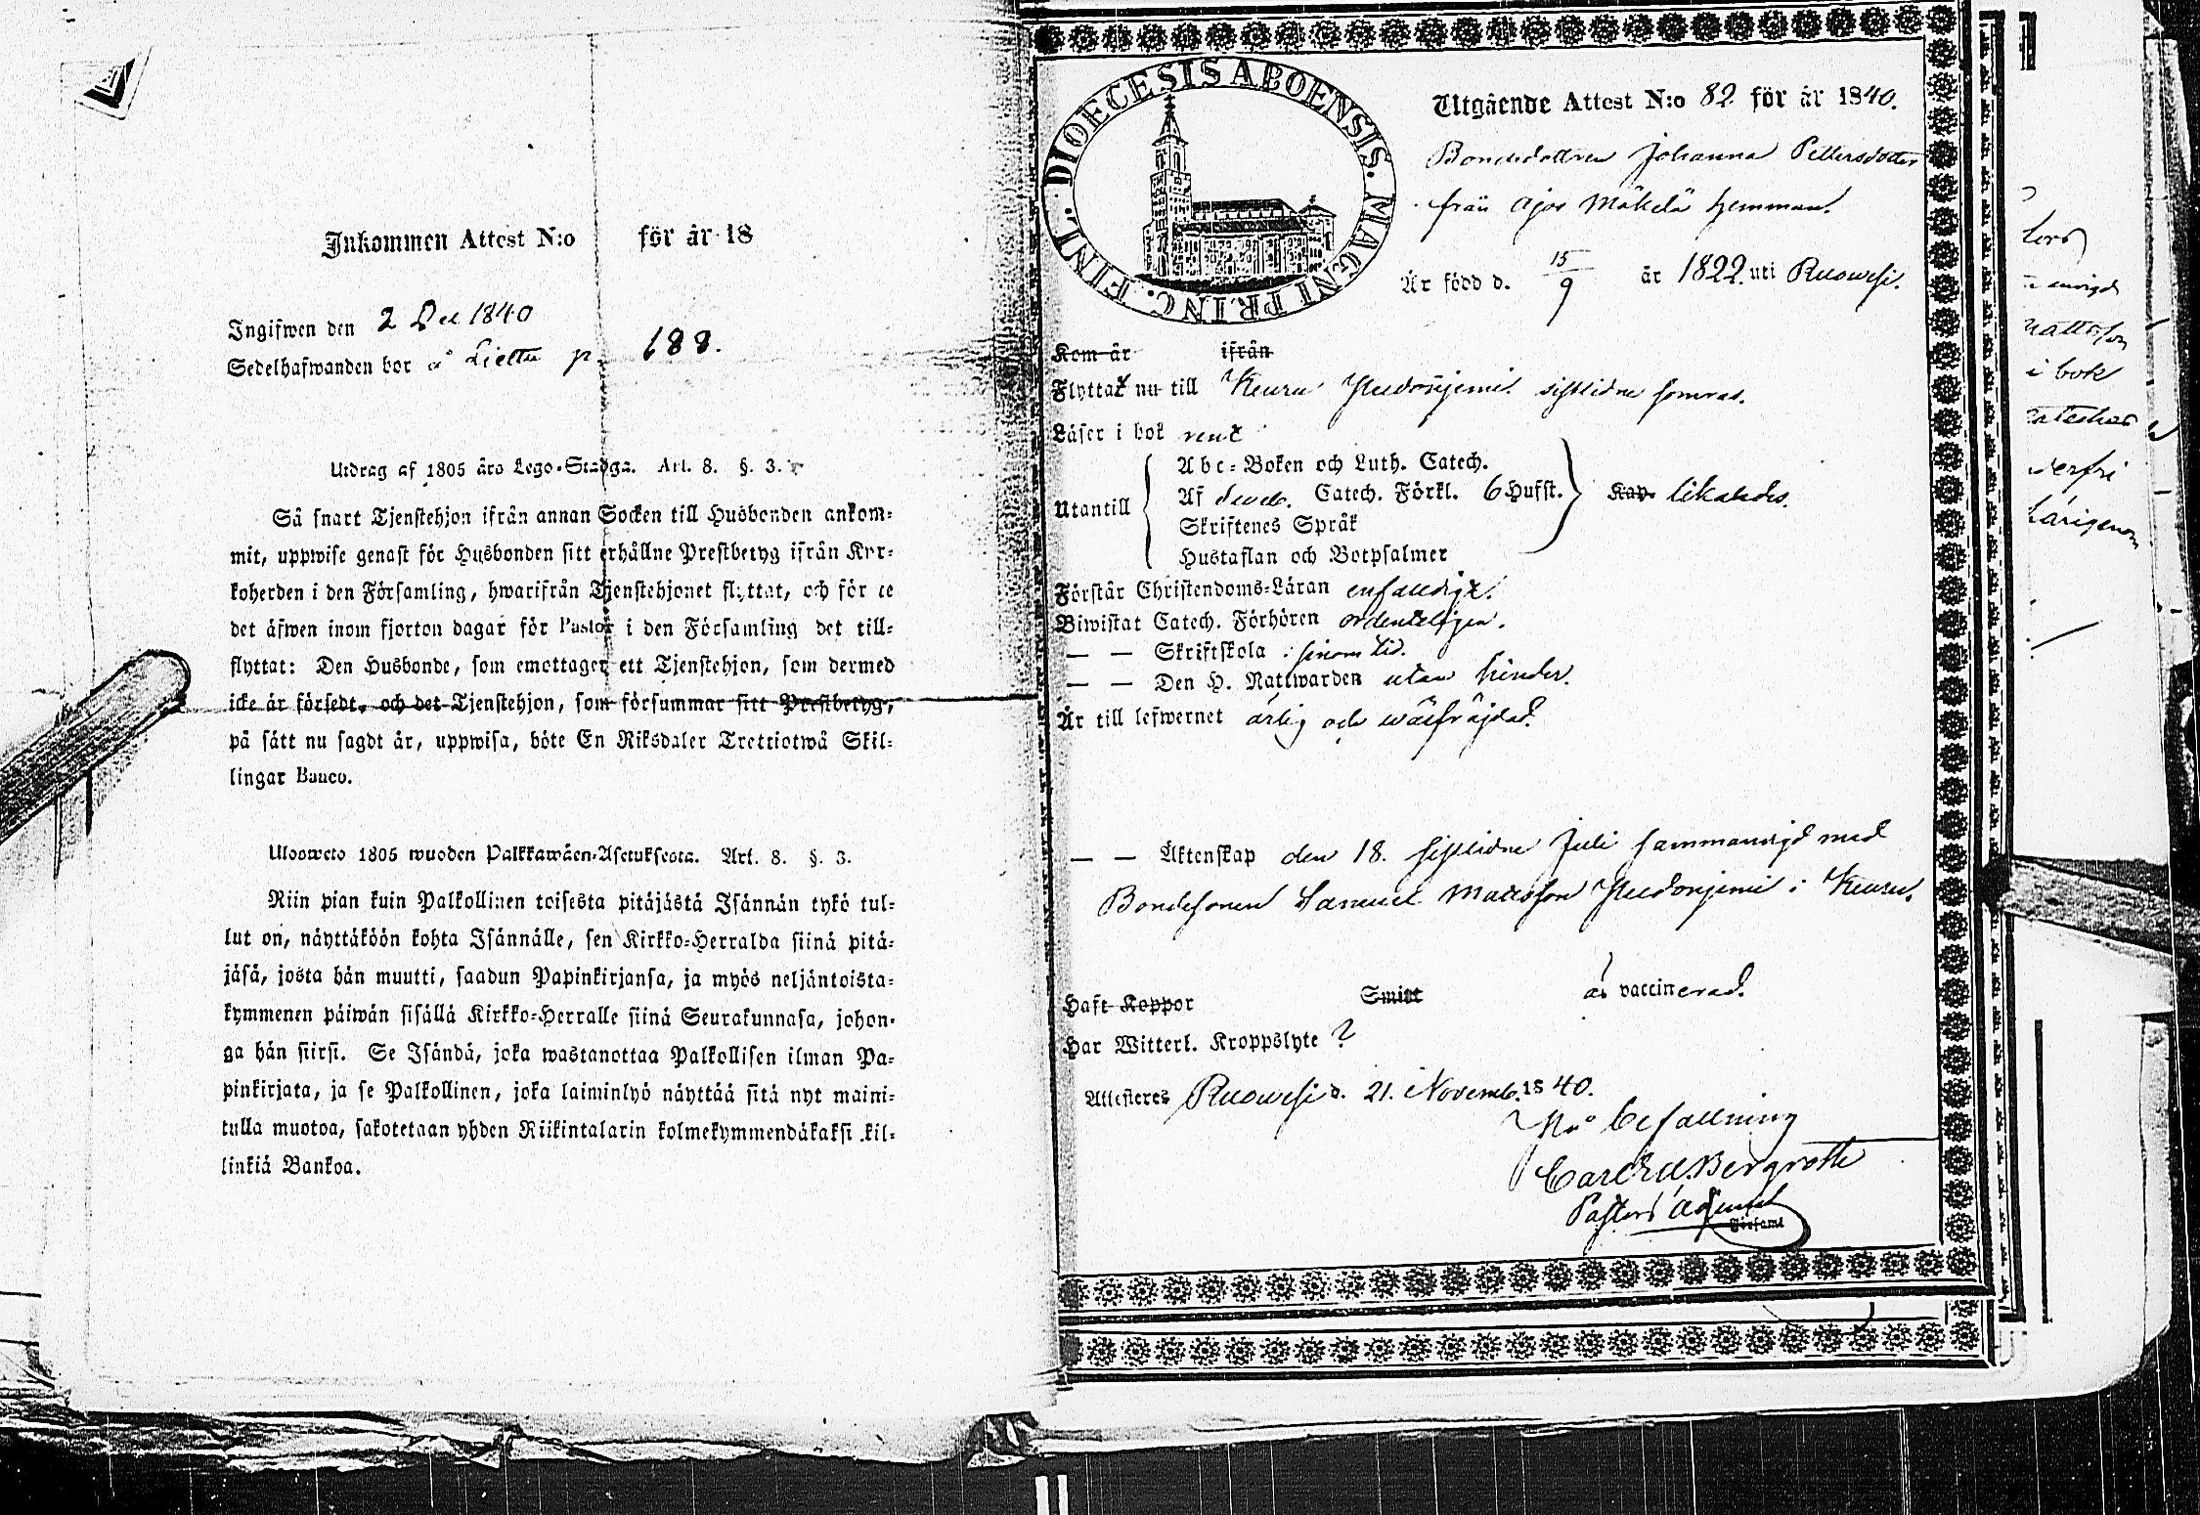 Inkommen Attest N:o för år 18
Ingifwen den 2 Dec 1840
Sedelhafwanden bor å Liettu p. 188.
Utdrag af 1805 års Lego-Stadga. Art. 8. §. 3.
Så snart Tjenstehjon ifrån annan Socken till Husbonden ankom-
mit, uppwise genast för Husbonden sitt erhållne Prestbetyg ifrån Kyr-
koherden i den Församling, hwarifrån Tjenstehjonet flyttat, och före te
det äfwen inom fjorton dagar för Pastor i den Församling det till-
flyttat: Den Husbonde, som emottager ett Tjenstehjon, som dermed
icke är försedt, och det Tjenstehjon, som försummar sitt Prestbetyg,
på sätt nu sagdt är, uppwisa, böte En Riksdaler Trettiotwå Skil-
lingar Banco.
Ulosweto 1805 wuoden Palkkawäen-Asetuksesta. Art. 8. §. 3.
Niin pian kuin Palkollinen toisesta pitäjästä Isännän tykö tul-
lut on, näyttäköön kohta Isännälle, sen Kirkko-Herralda siinä pitä-
jäsä, josta hän muutti, saadun Papinkirjansa, ja myös neljäntoista-
kymmenen päiwän sisällä Kirkko-Herralle siinä Seurakunnasa, johon-
ga hän siirsi. Se Isändä, joka wastanottaa Palkollisen ilman Pa-
pinkirjata, ja se Palkollinen, joka laiminlyö näyttää sitä nyt maini-
tulla muotoa, sakotetaan yhden Riikintalarin kolmekymmendäkaksi kil-
linkiä Bankoa.
DIOECESIS ABOENSIS. MAGNI PRINC. FINL.
Utgående Attest N:o 82 för år 1840.
Bondedottren Johanna Pettersdotter
från Ajos Mäkelä hemman.
Är född d. 15/9 år 1822 uti Ruowesi.
Kom år ifrån
Flyttat nu till Keuru sistlidne sommar.
Läser i bok rent
Utantill
Abc-Boken och Luth. Catech.
Af Catech. Förkl. 6 Hufst.
Skriftenes Språk
Hustaflan och Botpsalmer
Kap. likaledes.
Förstår Christendoms-Läran enfaldigt.
Biwistat Catech. Förhören ordenteligen.
— — Skriftskola sinom tid.
— — Den H. Nattwarden utan hinder.
Är till lefwernet ärlig och wälfräjdad.
— — Äktenskap den 18. sistlidne Juli sammanvigd med
Bondesonen Samuel Mattsson i Keuru.
Haft Koppor Smitt är vaccinerad.
Har Witterl. Kroppslyte ?
Attesteres Ruowesi d. 21. Novemb. 1840.
På befallning
Carl Ed. Bergroth
Pastors Adjunct